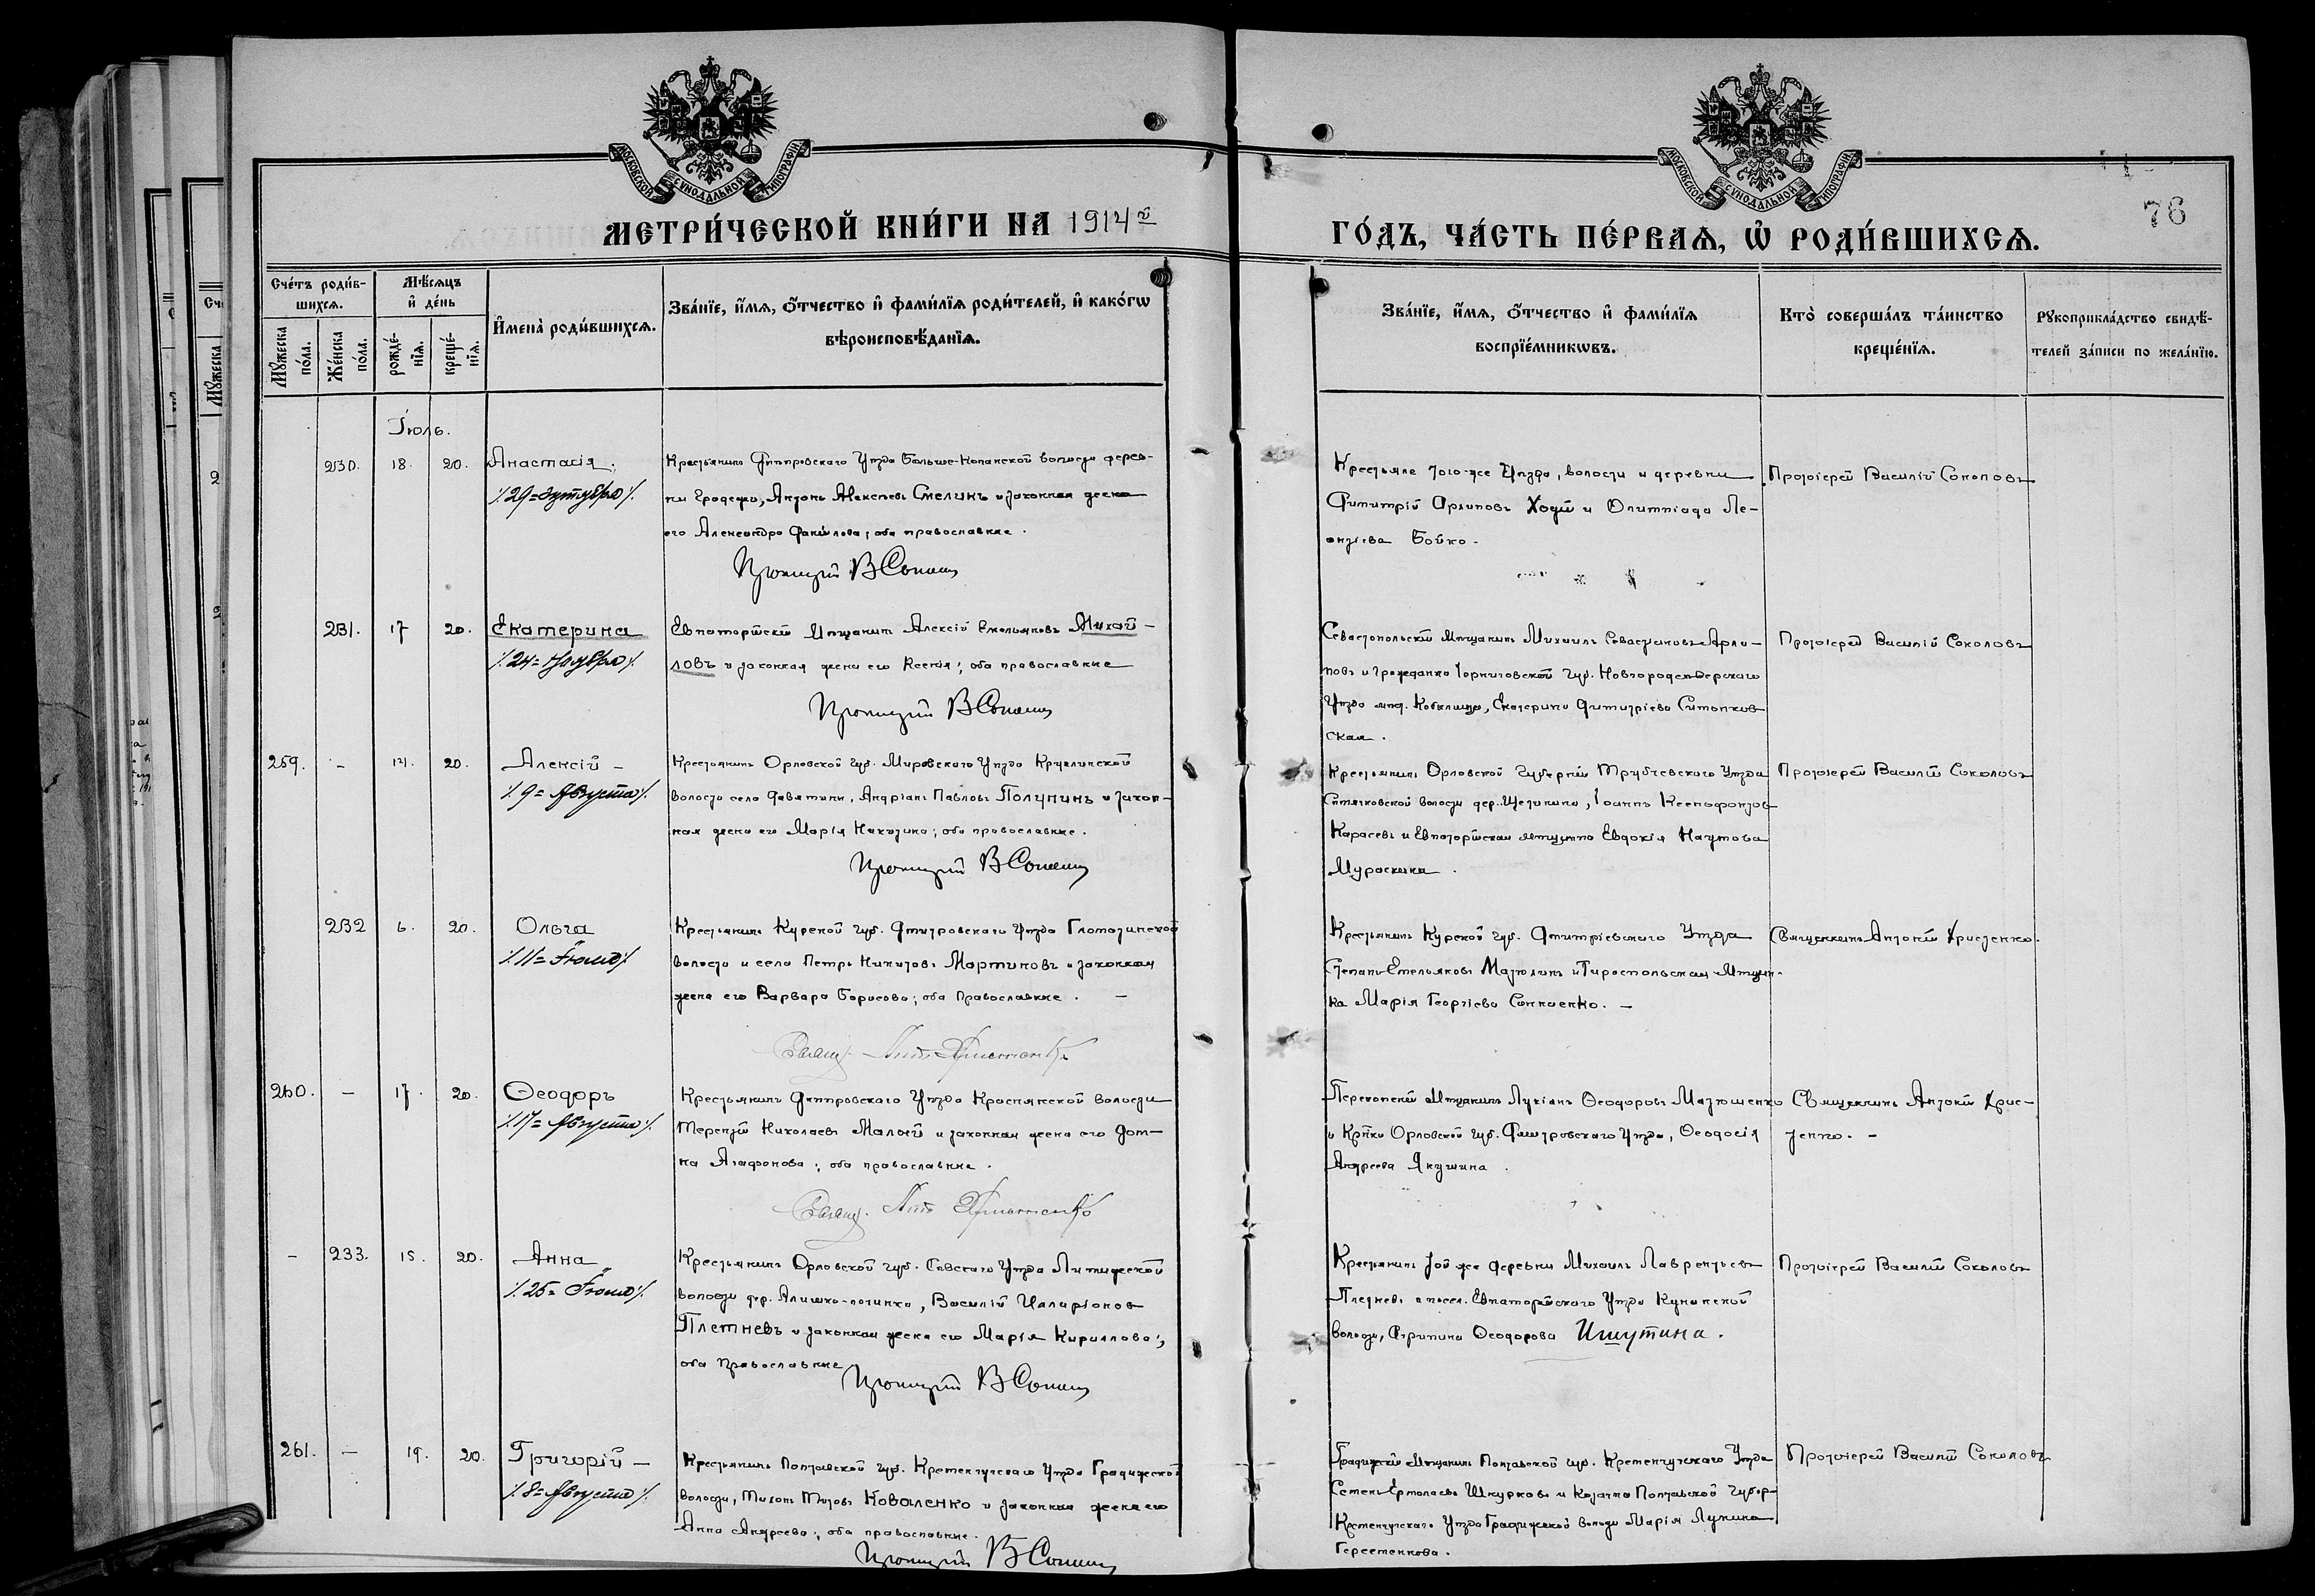 МОСКОВСКОЙ СѴНОДАЛЬНОЙ ТИПОГРАФІИ
МОСКОВСКОЙ СѴНОДАЛЬНОЙ ТИПОГРАФІИ
76
МЕТРИ́ЧЕСКОЙ КНИ́ГИ НА 1914 й
ГО́ДЪ, ЧА́СТЬ ПЕ́РВАѦ, Ѡ҆ РОДИ́ВШИХСѦ.
Сче́тъ роди́в-
шихсѧ.
Мꙋжеска по́ла.
Же́нска по́ла.
Мѣ́сѧцъ
и҆ де́нь
рожде́-
нїѧ.
креще́-
нїѧ.
И҆мена̀ роди́вшихсѧ.
Зва́нїе, и҆́мѧ, ѻ҆́тчество и҆ фами́лїѧ роди́телей, и҆ како́гѡ
вѣроисповѣ́данїѧ.
Зва́нїе, и҆́мѧ, ѻ҆́тчество и҆ фами́лїѧ
воспрїе́мникѡвъ.
Кто̀ соверша́лъ та́инство
креще́нїѧ.
Рꙋкоприкла́дство свидѣ́-
телей за́писи по жела́нїю.
Іюль.
230. 18. 20. Анастасія.
/. 29 = Октября /.
Крестьянинъ Днѣпровскаго Уѣзда Больше-Копанской волости дерев-
ни Антонъ Алексѣевъ Смелинъ и законная жена
его Александра оба православные.
Протоіерей В Соколовъ
Крестьяне того-же Уѣзда, волости и деревни
Димитрій Архиповъ и Олимпіада Ле-
онтіева Бойко.
Протоіерей Василій Соколовъ
231. 17 20. Екатерина
/. 24 = Ноября /.
Евпаторійскій Мѣщанинъ Алексій Емельяновъ Михай-
ловъ и законная жена его Ксенія; оба православные
Протоіерей В Соколовъ
Севастопольскій Мѣщанинъ Михаилъ Архи-
повъ и гражданка Черниговской губ. Новгородсѣверскаго
Уѣзда Екатерина Димитріева
ская.
Протоіерей Василій Соколовъ
259. – 20. Алексій –
/. 9 = Августа /.
Крестьянинъ Орловской губ. Уѣзда
волости села Девятина, Андріанъ Павловъ Полунинъ и закон-
ная жена его Марія Никитина; оба православные.
Протоіерей В Соколовъ
Крестьянинъ Орловской Губерніи Трубчевскаго Уѣзда
волости дер. Іоаннъ Ксенофонтовъ
Карасевъ и Евпаторійская Мѣщанка Евдокія Наумова
Мураскина.
Протоіерей Василій Соколовъ
232 6. 20. Ольга
/. 11 = Іюля /.
Крестьянинъ Курской губ. Дмитровскаго Уѣзда
волости и села Петръ Никитовъ Мартиновъ и законная
жена его Варвара Борисова; оба Православные. –
Свящ.
Крестьянинъ Курской губ. Дмитріевскаго Уѣзда
Степанъ Емельяновъ и Тираспольская Мѣщан-
ка Марія Георгіева –
Священникъ Антоній Христенко.
260. – 17. 20. Ѳеодоръ
/. 17 = Августа /.
Крестьянинъ Днѣпровскаго Уѣзда Краснянской Волости
Терентій Николаевъ Малый и законная жена его Дом-
на Агафонова; оба православные.
Свящ.
Перекопскій Мѣщанинъ Лукіанъ Ѳеодоровъ Матюшенко
и Кр-нка Орловской губ. Дмитровскаго Уѣзда, Ѳеодосія
Андреева Якушина.
Священникъ Антоній Хрис-
тенко. –
– 233. 15. 20. Анна
/. 25 = Іюля /.
Крестьянинъ Орловской губ. Сѣвскаго Уѣзда
волости дер. Василій Иларіонов
Плетневъ и законная жена его Марія Кириллова;
оба Православные
Протоіерей В Соколовъ
Крестьянинъ той же деревни Михаилъ Лаврентьевъ
Плетневъ и посел. Евпаторійскаго Уѣзда
Волости, Агрипина Ѳеодорова Ишутина.
Протоіерей Василій Соколовъ
261. – 19. 20. Григорій –
/. 8 = Августа /.
Крестьянинъ Полтавской губ. Кременчугскаго Уѣзда Градижской
Волости, Тихонъ Титовъ Коваленко и законная жена его
Анна Андреева; оба православные.
Протоіерей В Соколовъ
Градижскій Мѣщанинъ Полтавской губ. Кременчугскаго Уѣзда
Семенъ Ермолаевъ Шкурковъ и Козачка Полтавской Губер-
Кременчугскаго Уѣзда Градижской Волости Марія Лукина
Протоіерей Василій Соколовъ